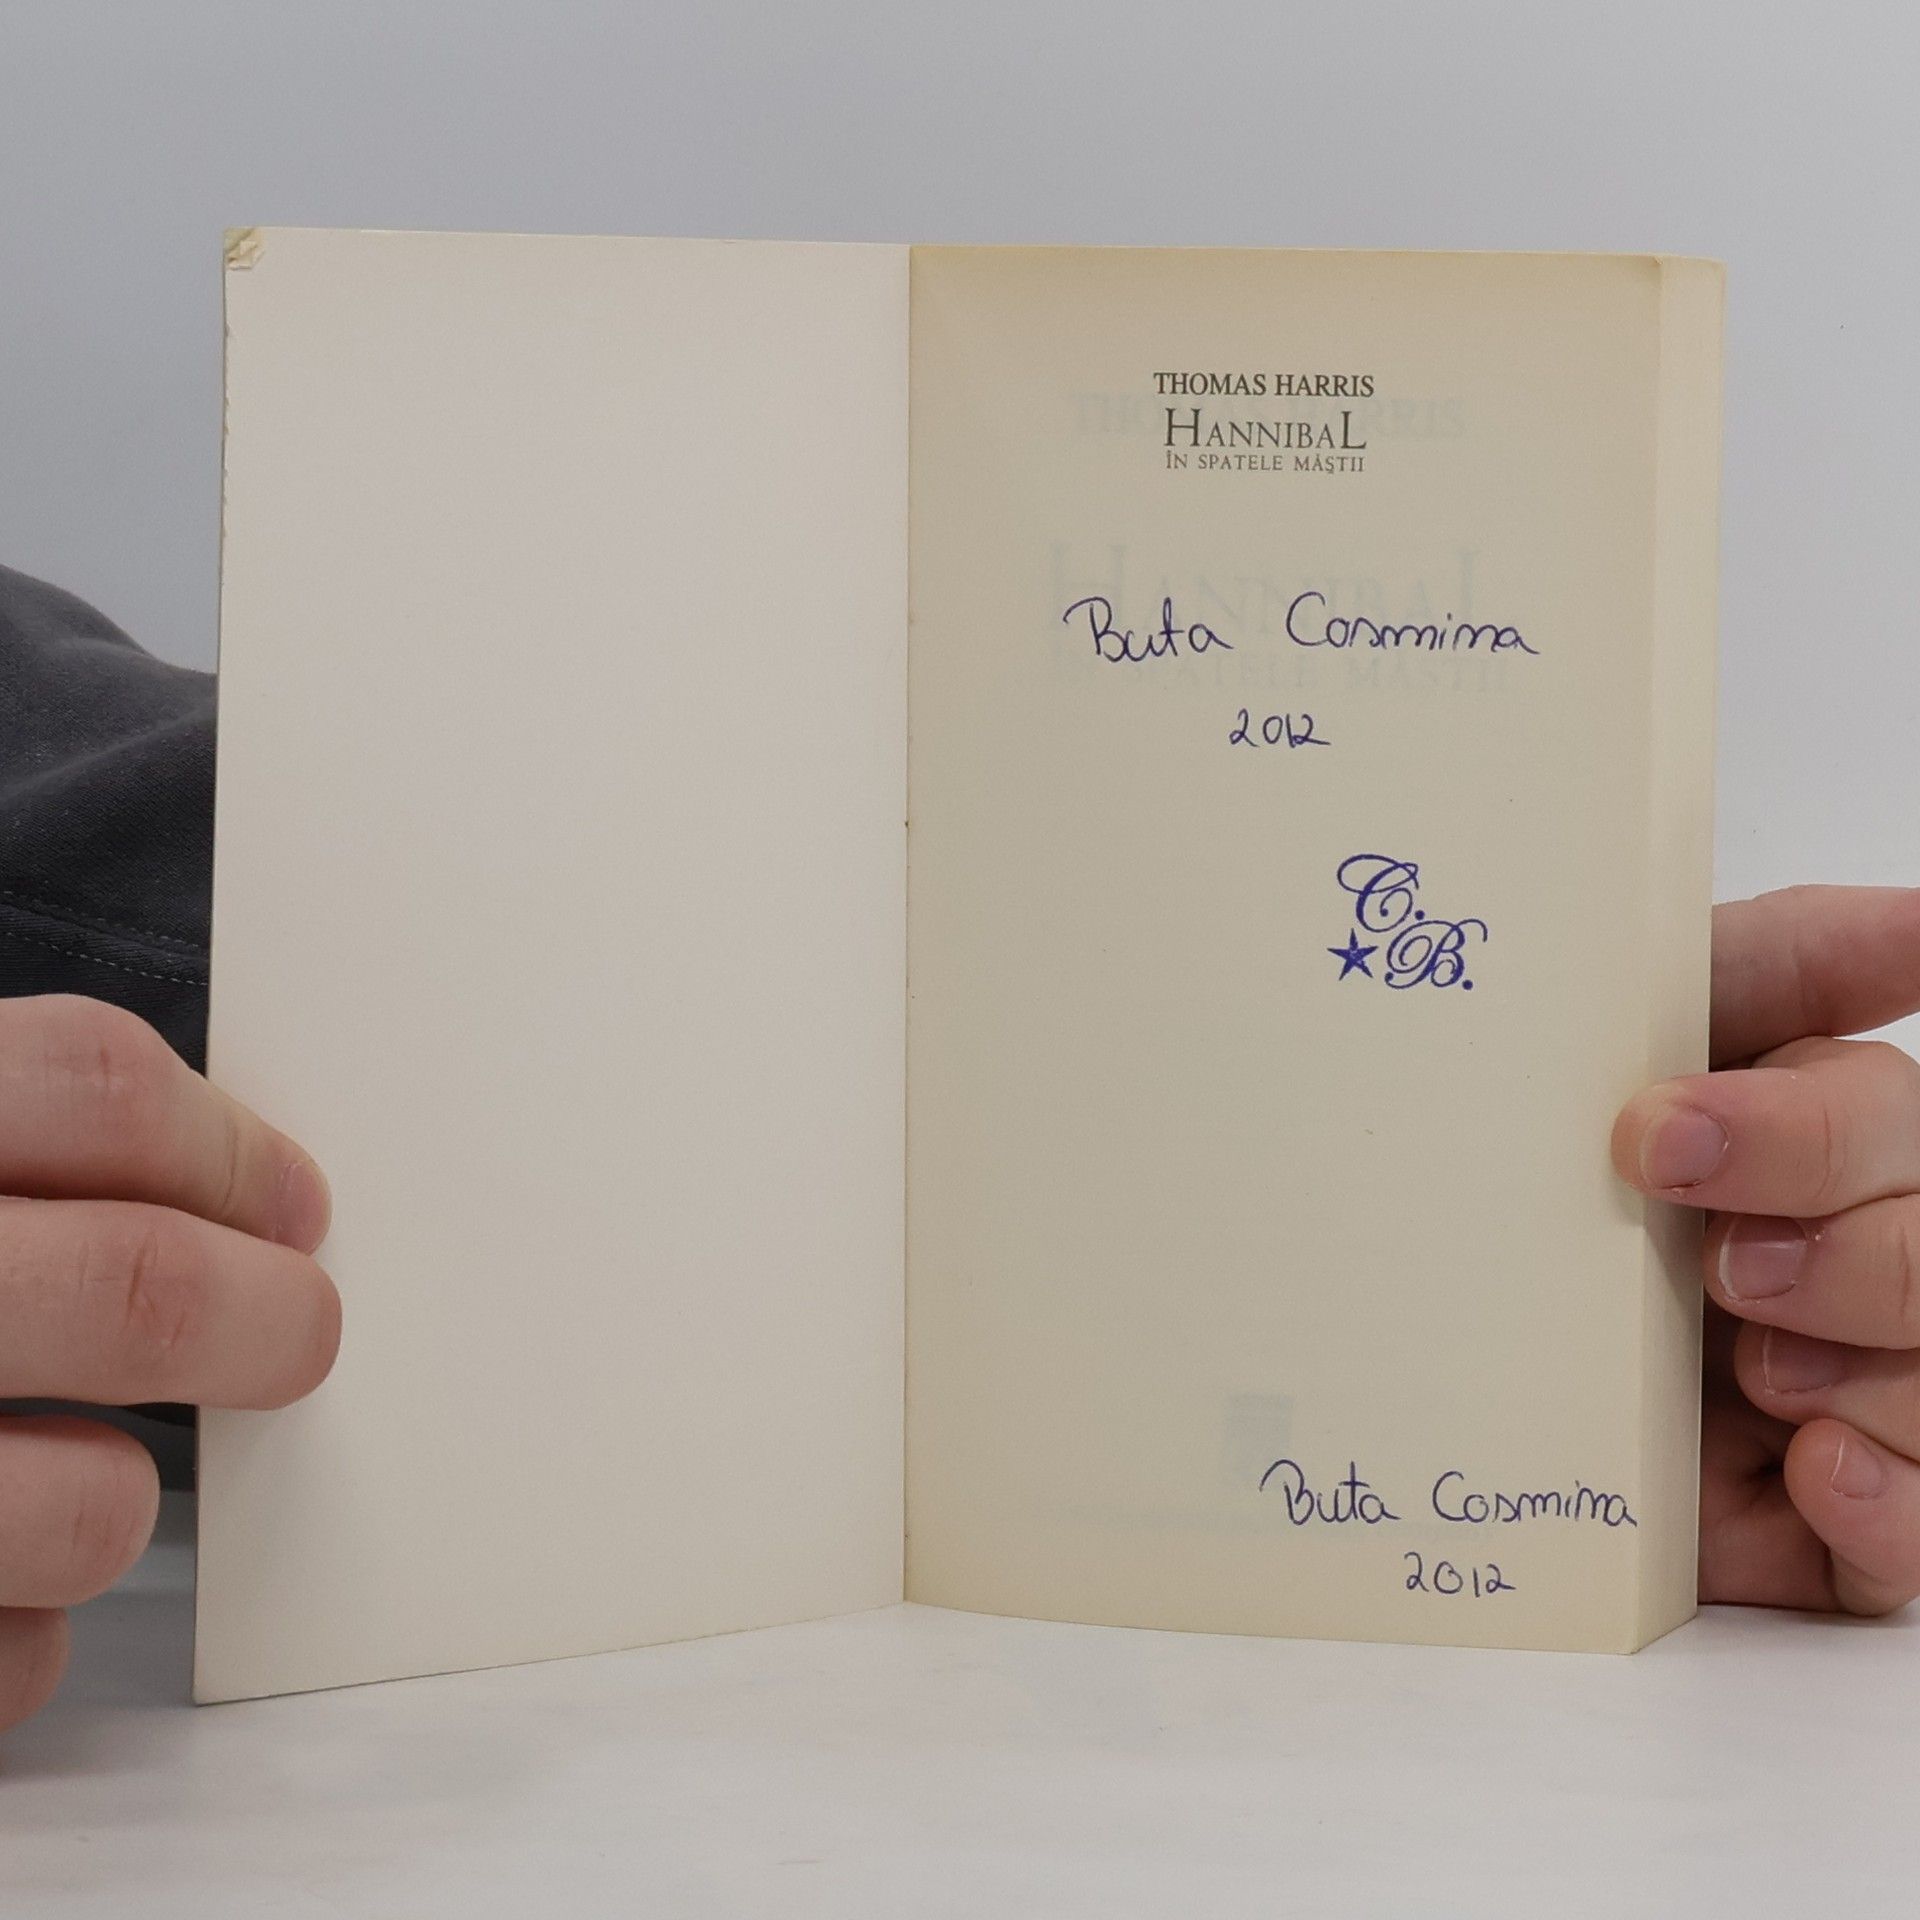 THOMAS HARRIS
HANNIBAL
ÎN SPATELE MĂŞTII
Buta Cosmina
2012
C.
B.
Buta Cosmina
2012